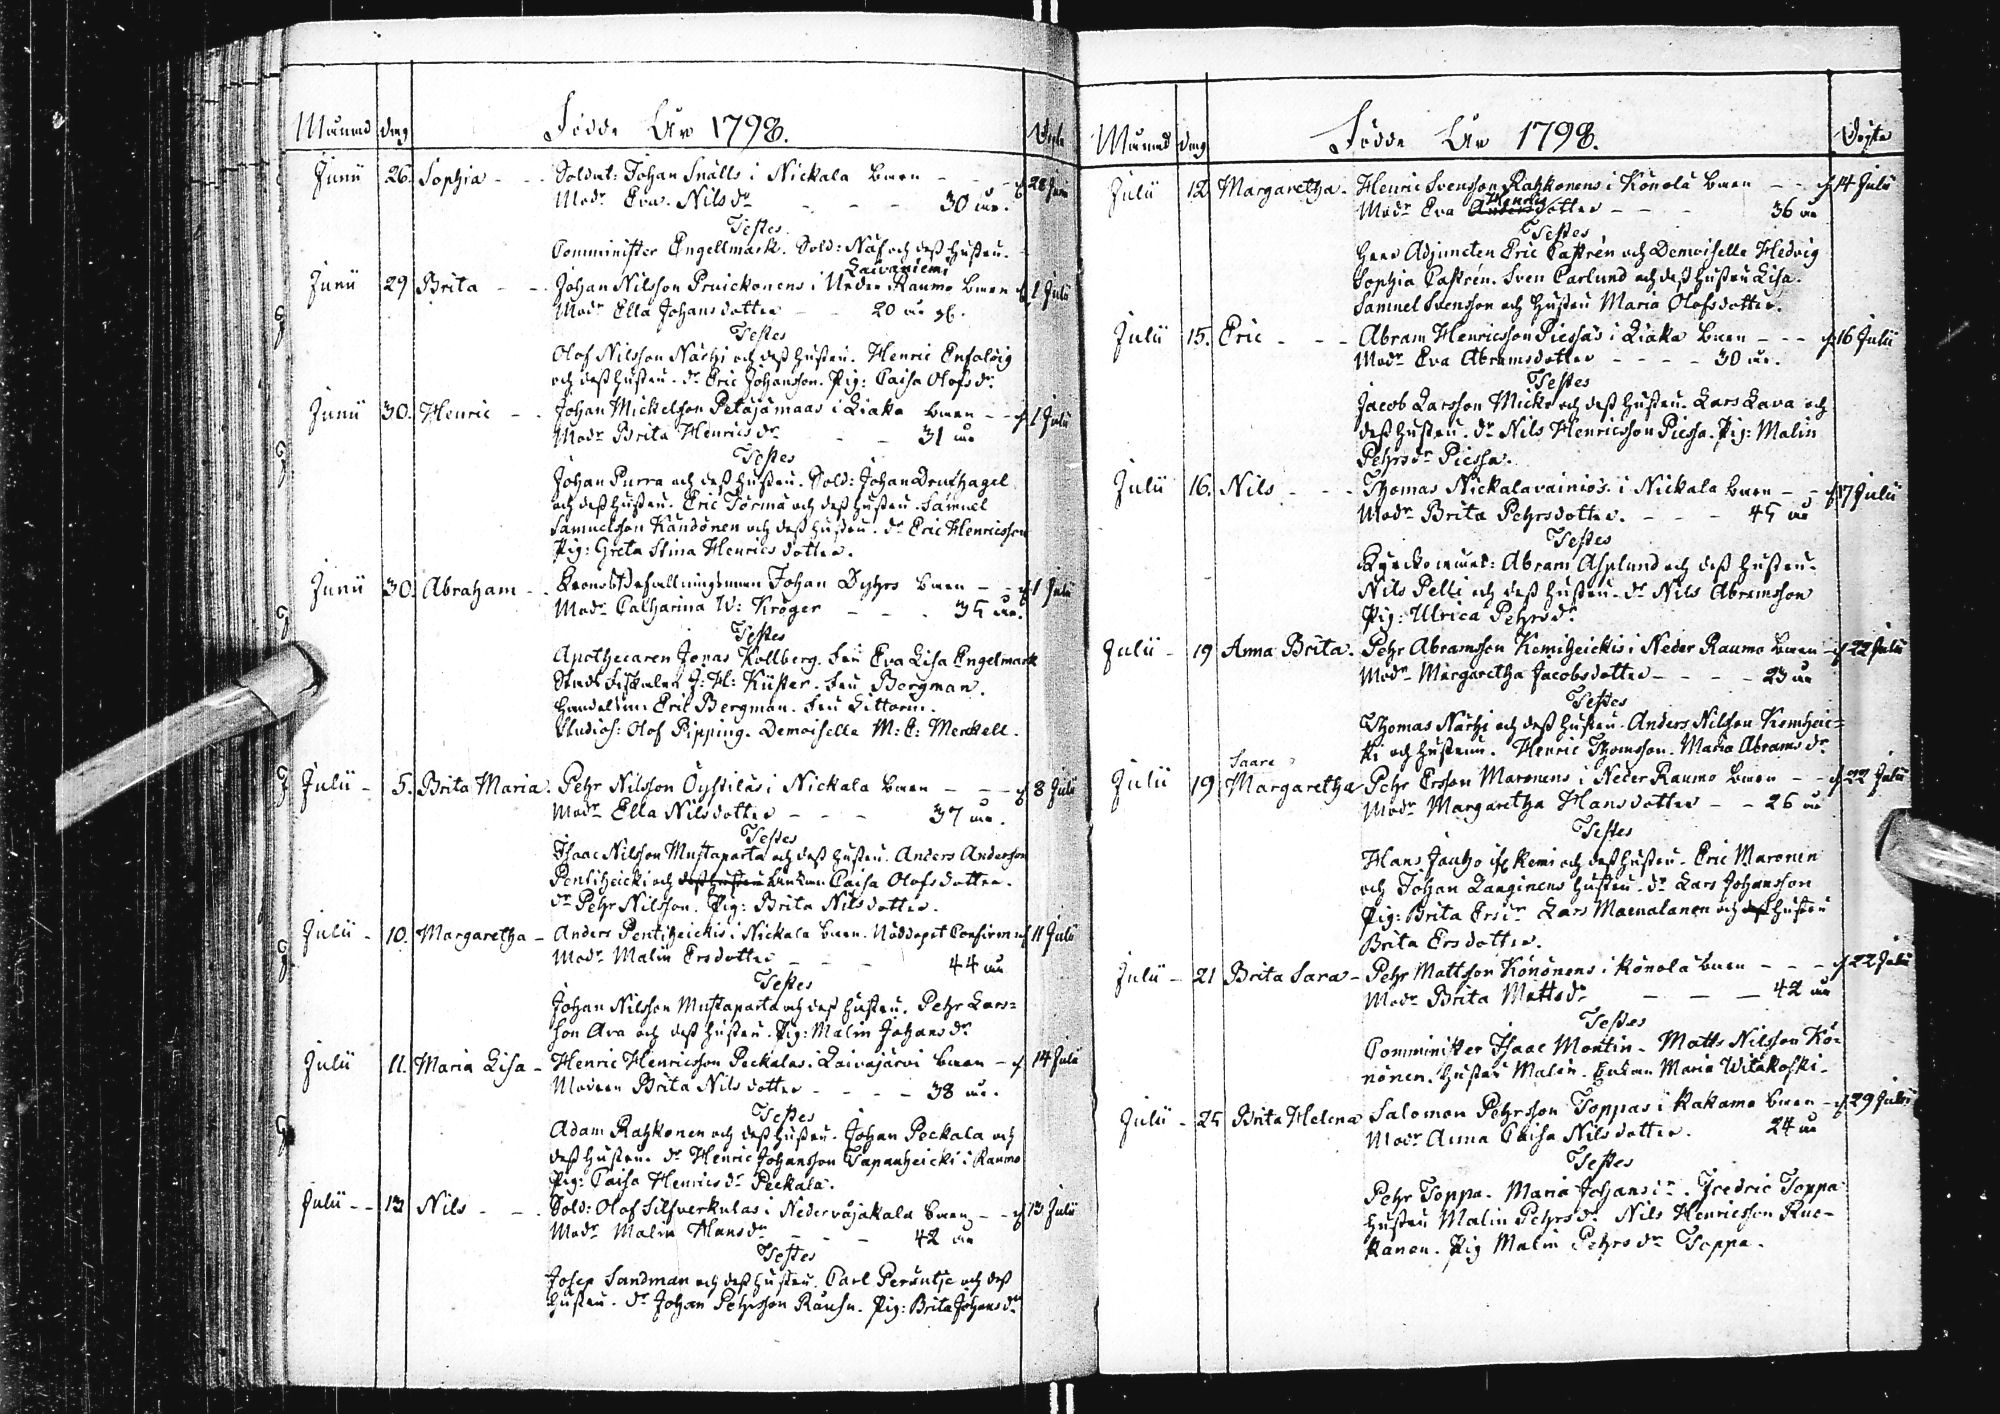 Månad dag Födde Åhr 1798. Döpte
Junii 26. Sophia - - Soldat: Johan Snälls i Nickala barn - - - 28 Juni
Modr Eva Nils dr - - - 30 år.
Testes
Comminister Engellmark. Sold: Näf och dess hustru.
Laivaniemi
Junii 29 Brita - - Johan Nilsson Pruickonens i Neder Raumo barn 1 Julii
Modr Ella Johansdotter - - 20 år
Testes
Olof Nilsson Närhi och dess hustru. Henric
och dess hustru. dr Eric Johansson. Pig: Caisa Olofs dr
Junii 30. Henric - - Johan Mickelson Petäjämaas i Liaka barn - - 1 Julii
Modr Brita Henrics dr - - 31 år
Testes
Johan Purra och dess hustru. Sold: Johan Drufhagel
och dess hustru. Eric Törmä och dess hustru. Samuel
Samuelsson Kandönen och dess hustru. dr Eric Henricsson
Pig: Greta Stina Henrics dotter.
Junii 30. Abraham - Johan barn - - 1 Juli
Modr Catharina W: Kröger - - - 35 år.
Testes
Apothecaren Jonas Kollberg. Fru Eva Lisa Engelmark
Stads Fiskalen J: H: Küster. Fru Bergman.
Handelsm: Eric Bergman. Fru Littorin.
Studios: Olof Pipping. Demoiselle M: C: Merkell.
Julii - 5. Brita Maria. Pehr Nilsson Öystiläs i Nickala barn - - - 8 Julii
Modr Ella Nilsdotter - - - 37 år.
Testes
Isaac Nilsson Mustaparta och dess hustru. Anders Anderson
Pentiheicki och dess hustru Caisa Olofsdotter.
dr Pehr Nilsson. Pig: Brita Nilsdotter.
Julii - 10. Margaretha - Anders Pentiheickis i Nickala barn. Nöddöpt Confirm: 11 Julii
Modr Malin Ersdotter - - - 44 år
Testes
Johan Nilsson Mustaparta och dess hustru. Pehr Lars=
son Ara och dess hustru. Pig: Malin Johans dr
Julii 11. Maria Lisa - Henric Henricsson Peckalas i Laivajärvi barn - 14 Julii
Modren Brita Nilsdotter - - - 38 år.
Testes
Adam Rahkonen och dess hustru. Johan Peckala och
dess hustru. dr Henric Johansson Tapanheicki i Raumo
Pig: Caisa Henrics dr Peckala.
Julii - - 13 Nils - - Sold: Olof Silfverkulas i Nedervojakala barn - - 13 Julii
Modr Malin Hansdr - - - 42 år
Testes
Josep Sandman och dess hustru. Carl Peruntje och dess
hustru. dr Johan Pehrsson Pig: Brita Johans dr
Månad dag Födde Åhr 1798. Döpte
Julii 12 Margaretha. Henric Svensson Rahkonens i Könölä barn - - 14 Julii
Henrics
Modr Eva Andersdotter - - - 36 år
Testes
Herr Adjuncten Eric Castrén och Demoiselle Hedvig
Sophia Castrén. Sven Carlund och dess hustru Lisa.
Samuel Svensson och hustru Maria Olofsdotter.
Julii 15. Eric - - - Abram Henricsson Piessas i Liaka barn - - - 16 Julii
Modr Eva Abramsdotter - - - - 30 år.
Testes
Jacob Larsson Micko och dess hustru. Lars Lava och
dess hustru. dr Nils Henricsson Piessa. Pig: Malin
Pehrsdr Piessa.
Julii 16. Nils - - - Thomas Nickalavainiös i Nickala barn - - 17 Julii
Modr Brita Pehrsdotter. - - - 45 år
Testes
Abram Asplund och dess hustru.
Nils Pelli och dess hustru. dr Nils Abramsson
Pig: Ulrica Pehrsdr
Julii - 19 Anna Brita. Pehr Abramsson Kemiheickis i Neder Raumo barn 22 Julii
Modr Margaretha Jacobsdotter - - - 23 år
Testes
Thomas Närhi och dess hustru. Anders Nilsson Kemihei=
ki och hustru. Henric Thomsson. Maria Abrams dr
Saara
Julii 19 Margaretha Pehr Ersson Maronens i Neder Raumo barn - - 22 Julii
Modr Margaretha Hansdotter - - 26 år
Testes
Hans Jautzo Kemi och dess hustru. Eric Maronen
och Johan Laaginens hustru. dr Lars Johansson
Pig: Brita Ersdr Lars Maenalanen och dess hustru
Brita Ersdotter.
Julii - 21 Brita Sara - Pehr Mattsson Könönens i Könölä barn - - - 22 Julii
Modr Brita Mattsdr - - - 42 år
Testes
Comminister Isaac Montin. Matts Nilsson Kö=
nönen. Hustru Malin. Enkan Maria Witakoski.
Julii - 25 Brita Helena Salomon Pehrsson Toppas i Kakamo barn - 29 Julii
Modr Anna Caisa Nilsdotter. 24 år
Testes
Pehr Toppa. Maria Johansdr. Fredric Toppa
hustru Malin Pehrsdr Nils Henricsson Rue-
kanen. Pig Malin Pehrsdr Toppa.